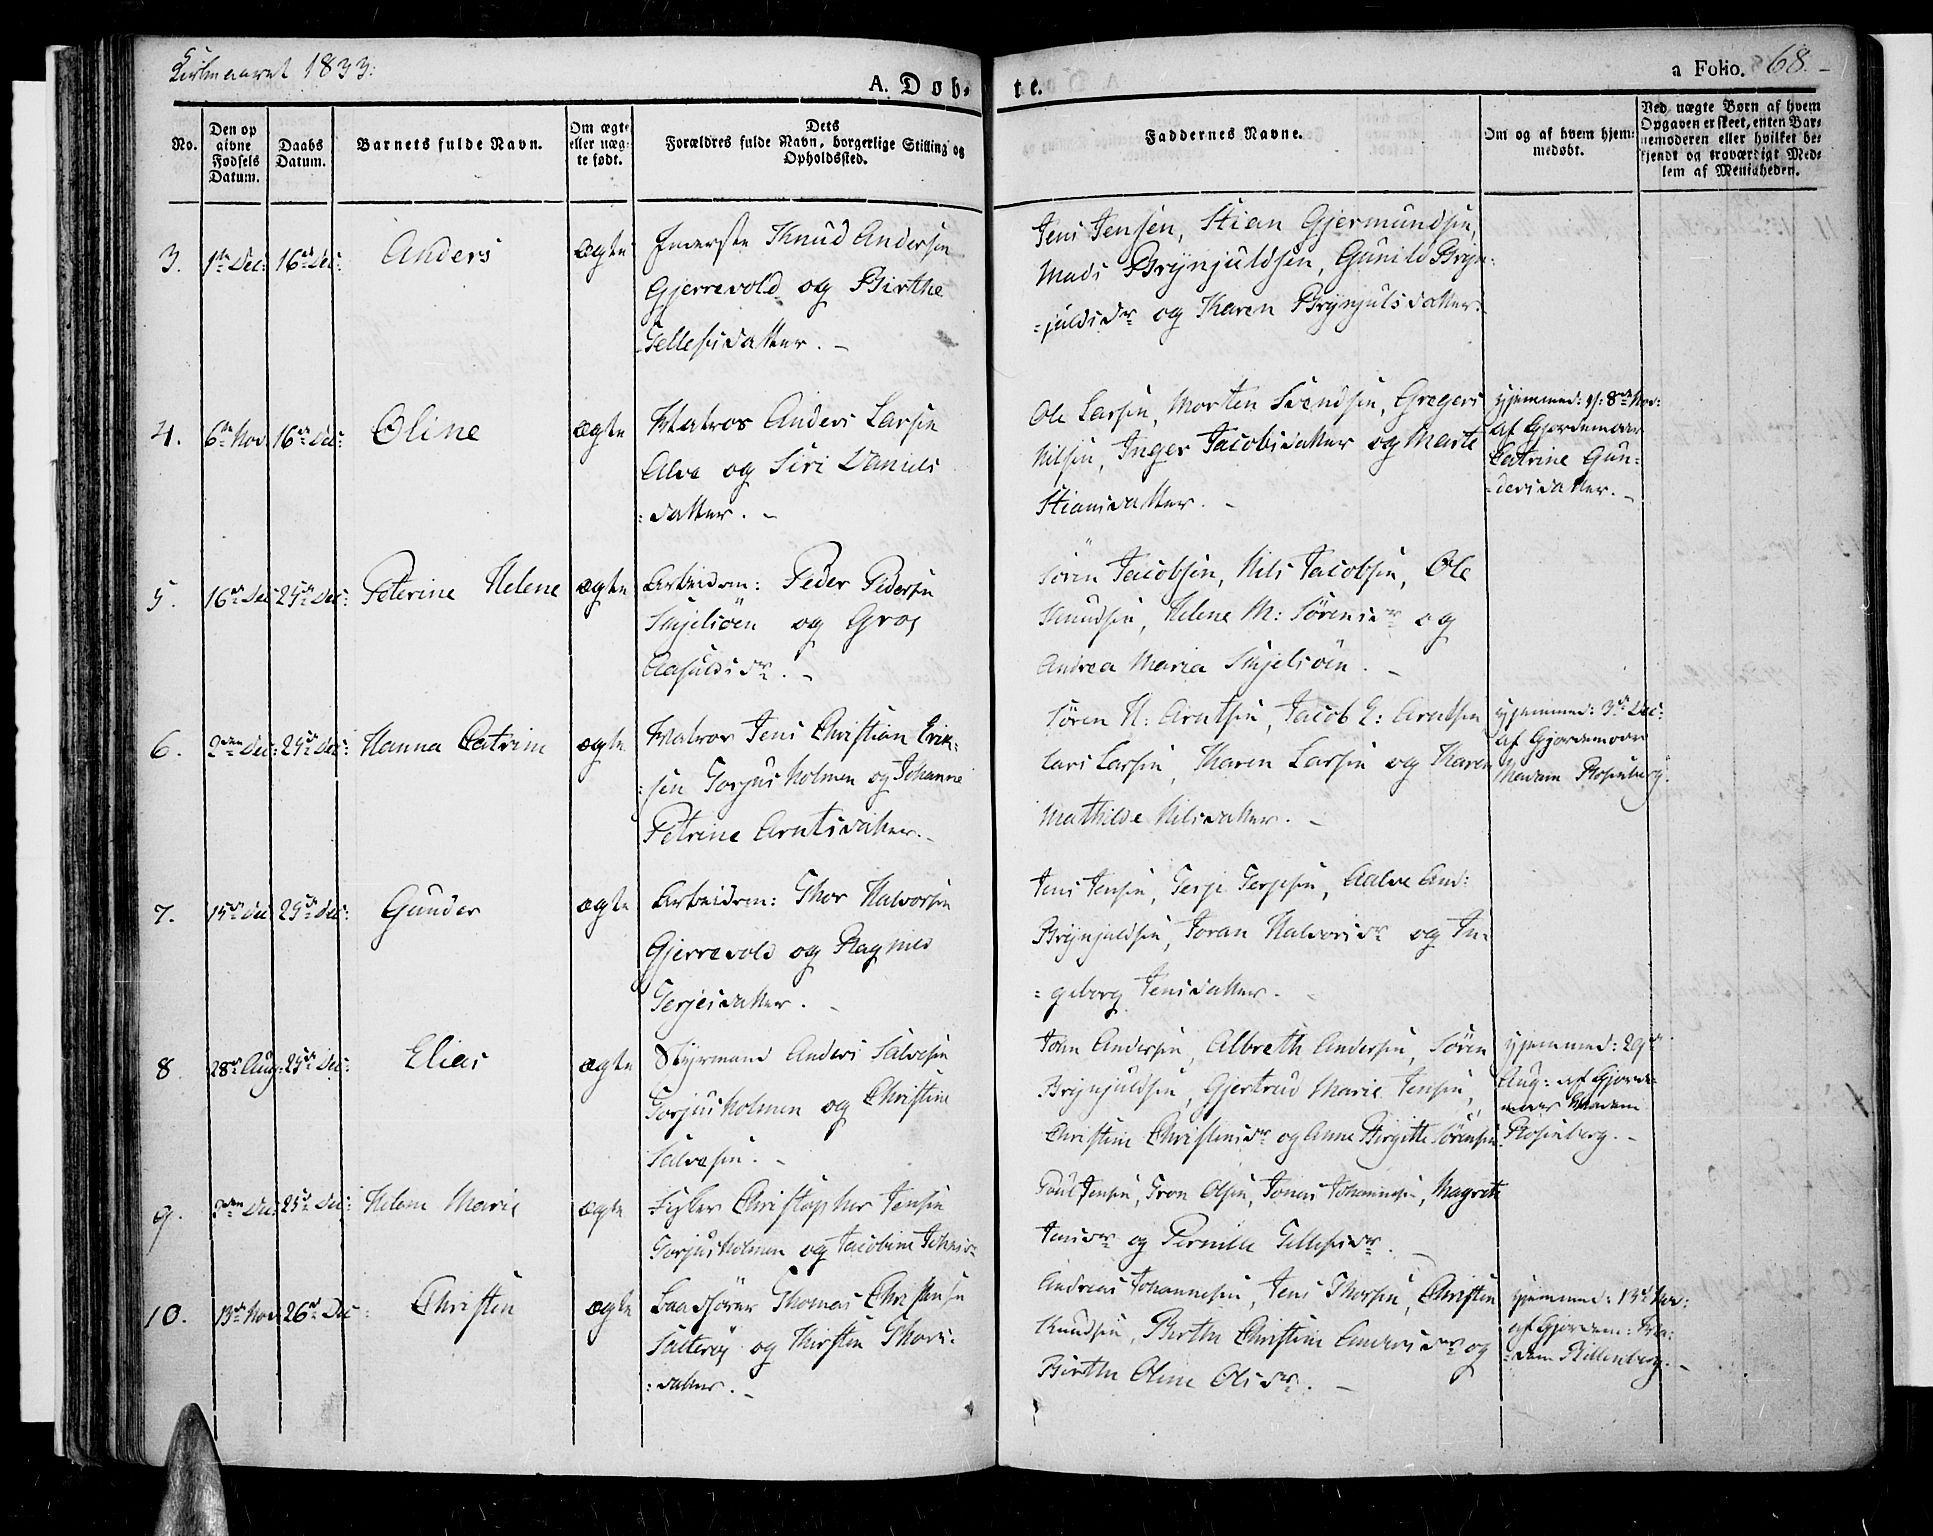 Kirkeaaret 1833:
A. Døb-
te.
a Folio. 68.
No.
Den op
givne
Fødsels
Datum.
Daabs
Datum.
Barnets fulde Navn.
Om ægte
eller uæg-
te født.
Dets
Forældres fulde Navn, borgerlige Stilling og
Opholdssted.
Faddernes Navne.
Om og af hvem hjem-
medøbt.
Ved uægte Børn af hvem
Opgaven er skeet, enten Bar-
nemoderen eller hvilket be-
kjendt og troværdigt Med-
lem af Menigheden.
3. 1ste Dec: 16de Dec: Anders ægte
Knud Andersen
Gjerrevold og Birthe
Tellefsdatter. –
Jens Jensen, Stian Gjermundsen,
Mads Brynjuldsen, Gunild Bryn-
=julds Dr og Karen Brynjulsdatter.
4. 6te Nov 16de Dec: Oline ægte
Matros Anders Larsen
Alve og Siri Daniels
=datter. –
Ole Larsen, Morten Svendsen, Gregers
Nilsen, Inger Jacobsdatter og Marte
Stiansdatter. –
Hjemmed: d: 8de Nov:
af Gjordemoer
Catrine Gun-
=dersdatter. –
5. 16de Dec 25de Dec: Peterine Helene ægte
Arbeidsm: Peder Pedersen
Skjelsöen og Groe
Aasulds Dr. –
Sören Jacobsen, Nils Jacobsen, Ole
Knudsen, Helene M: Sörens Dr og
Andrea Maria Skjelsöen. –
6. 2den Dec: 25de Dec: Hanna Catrine ægte
Matros Jens Christian Erik-
=sen Torjusholmen og Johanne
Petrine Arntsdatter. –
Sören H: Arntsen, Jacob E: Arntsen
Lars Larsen, Karen Larsen og Karen
Mathilde Nilsdatter. –
Hjemmed: 3de Dec:
af Gjordemoer
Madam Rosenberg.
7. 15de Dec 25de Dec: Gunder ægte
Arbeidsm: Thor Halvorsen
Gjerrevold og Ragnild
Terjesdatter. –
Jens Jensen, Terje Terjesen, Aalve And:
Brynjuldsen, Joran Halvors Dr og In-
=geborg Jensdatter. –
8. 28de Aug: 25de Dec: Elias ægte
Styrmand Anders Salvesen
Torjusholmen og Christine
Salvesen. –
John Andersen, Albreth Andersen, Sören
Brynjuldsen, Gjertrud Marie Jensen,
Christine Christens Dr og Anne Birgitte Sörensen.
Hjemmed: 29de
Aug: af Gjorde-
moer Madam
Rosenberg. –
9. 2den Dec: 25de Dec: Helene Marie ægte
Fisker Christopher Jensen
Torjusholmen og Jacobine Johns Dr
Poul Jensen, Tron Olsen, Jonas Johannesen, Magrete
Jens Dr og Pernille Tellefs Dr. –
10. 13de Nov 26de Dec: Christen ægte
Baadförer Thomas Christensen
Salteröe og Kirsten Thors-
=datter. –
Andreas Johannesen, Jens Thorsen, Christen
Knudsen, Birthe Christine Anders Dr og
Birthe Oline Ols Dr. –
Hjemmed: 13de Nov:
af Gjordem: Ma-
=dam Rillenberg. –